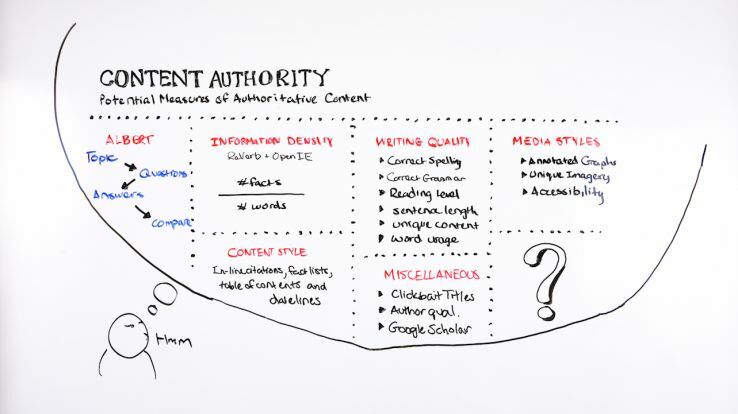 CONTENT AUTHORITY
Potential Measures of Authoritative Content
ALBERT
Topic
Questions
Answers
Compare
INFORMATION DENSITY
ReVerb + OpenIE
#facts
# words
CONTENT STYLE
In-line citations, fact lists,
table of contents and
datelines
WRITING QUALITY
Correct Spelling
Correct Grammar
Reading level
sentence length
unique content
word usage
MISCELLANEOUS
Clickbait Titles
Author qual.
Google Scholar
MEDIA STYLES
Annotated Graphs
Unique Imagery
Accessibility
?
Hmm